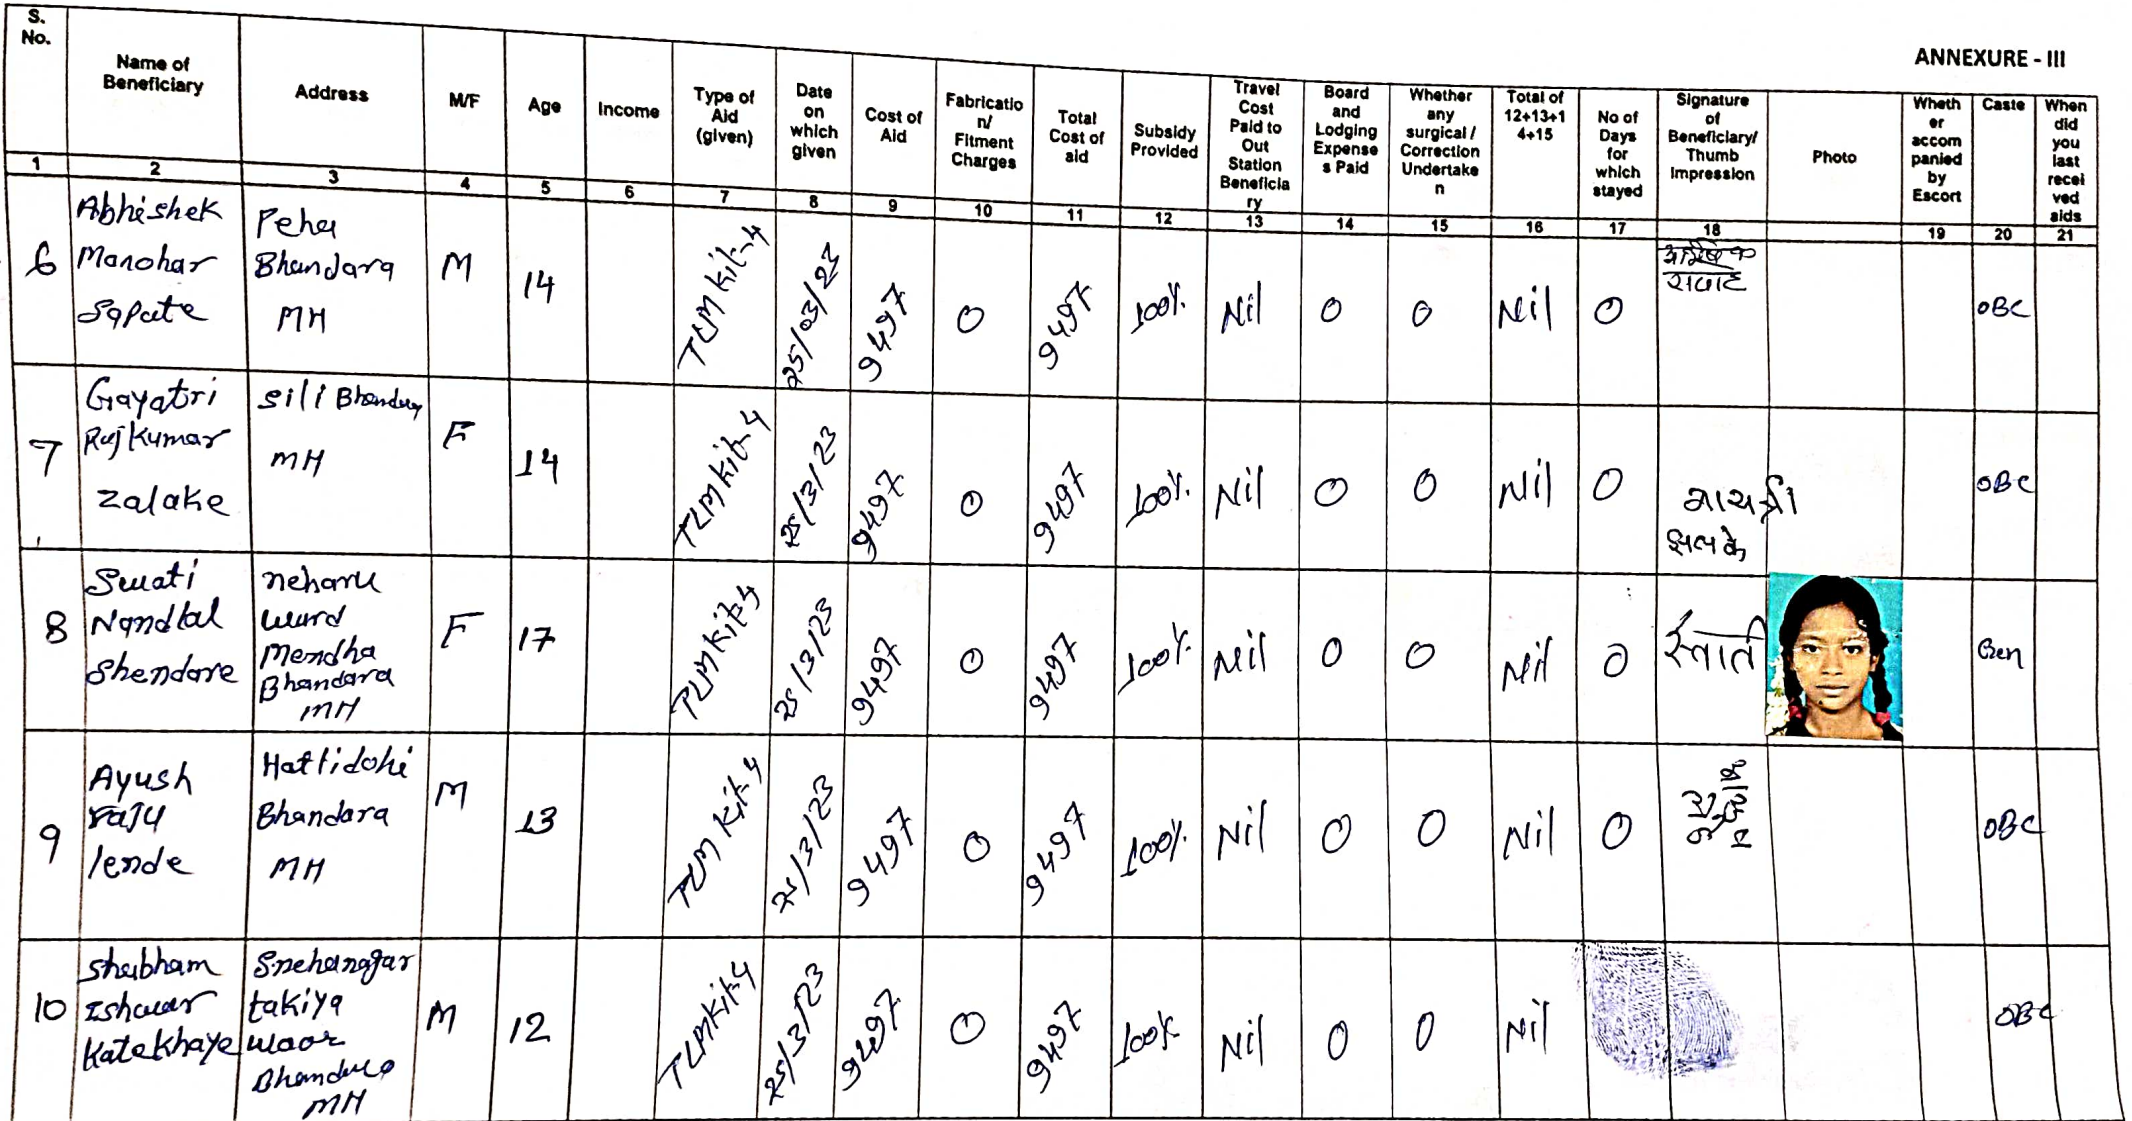 ANNEXURE - III
S.
No.
Name of
Beneficiary
Address
M/F
Age
Income
Type of
Aid
(given)
Date
on
which
given
Cost of
Aid
Fabricatio
n/
Fitment
Charges
Total
Cost of
aid
Subsidy
Provided
Travel
Cost
Paid to
Out
Station
Beneficia
ry
Board
and
Lodging
Expense
s Paid
Whether
any
surgical /
Correction
Undertake
n
Total of
12+13+1
4+15
No of
Days
for
which
stayed
Signature
of
Beneficiary/
Thumb
Impression
Photo
Wheth
er
accom
panied
by
Escort
Caste
When
did
you
last
recei
ved
aids
1 2 3 4 5 6 7 8 9 10 11 12 13 14 15 16 17 18 19 20 21
6
Abhishek
Manohar
Sapate
Peher
Bhandara
MH
M
14
TLM kit-4
25/03/23
9497
0
9497
100%
Nil
0
0
Nil
0
OBC
7
Gayatri
Rajkumar
Zalake
sili Bhandara
MH
F
14
TLM kit-4
25/3/23
9497
0
9497
100%
Nil
0
0
Nil
0
गायत्री
झलके
OBC
8
Swati
Nandlal
Shendare
neharu
ward
Mendha
Bhandara
MH
F
17
TLM kit-4
25/3/23
9497
0
9497
100%
Nil
0
0
Nil
0
स्वाती
Gen
9
Ayush
raju
lende
Hattidohi
Bhandara
MH
M
13
TLM kit-4
25/3/23
9497
0
9497
100%
Nil
0
0
Nil
0
OBC
10
Shubham
Ishwar
Katekhaye
Snehanagar
takiya
waor
Bhandara
MH
M
12
TLM kit-4
25/3/23
9497
0
9497
100%
Nil
0
0
Nil
OBC